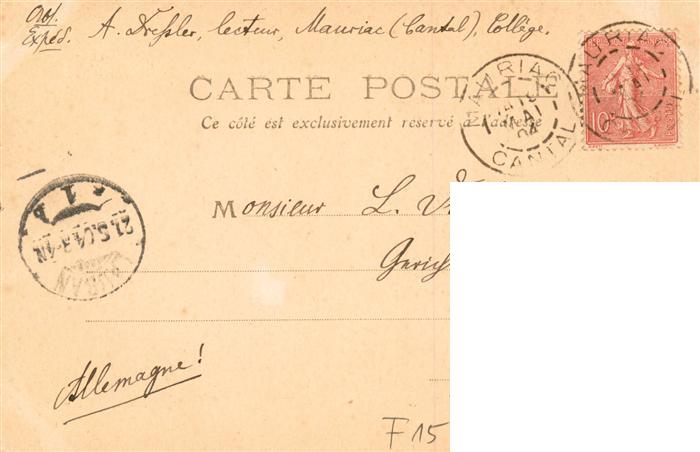 Abs.
Exped. A. Dreßler, lecteur, Mauriac (Cantal), Collège.
CARTE POSTALE
Ce côté est exclusivement réservé à l'adresse
MAURIAC
CANTAL
MAURIAC
10
Monsieur L.
21.5.04.
1 b
Allemagne!
F 15